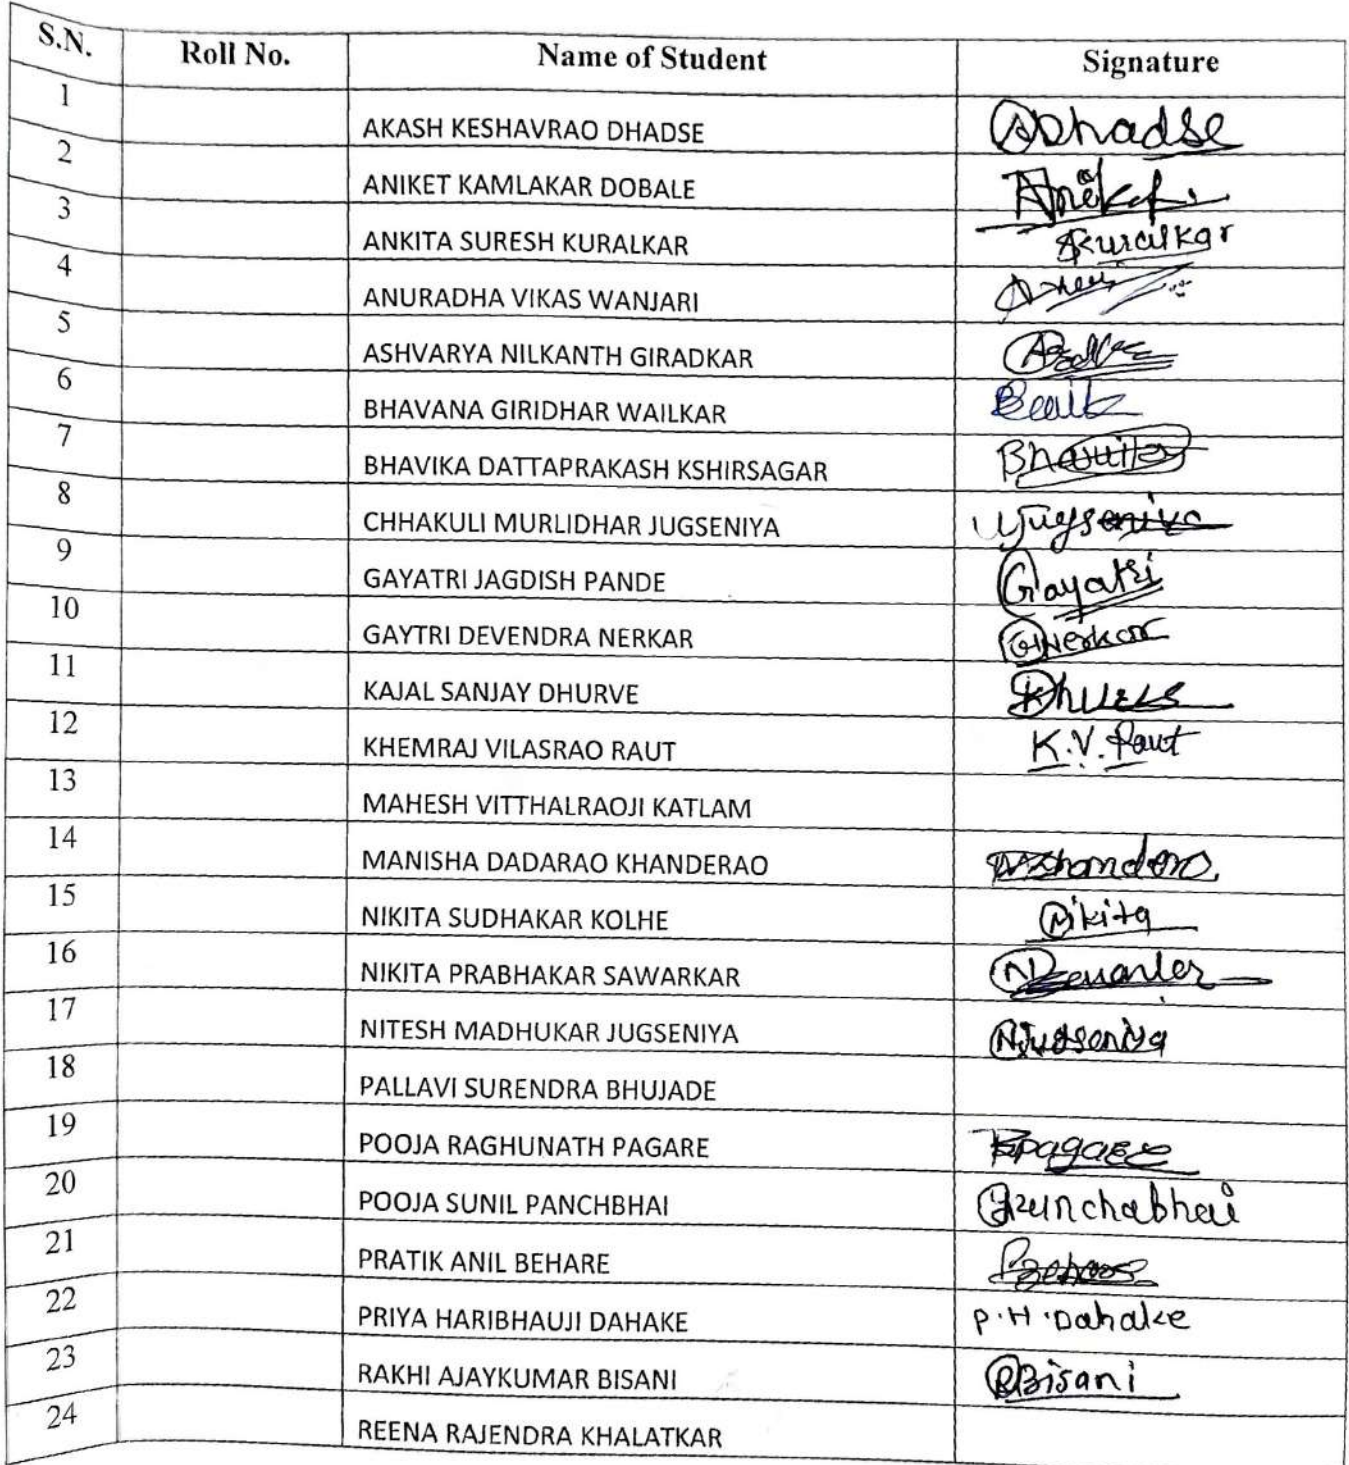 S.N. Roll No. Name of Student Signature
1 AKASH KESHAVRAO DHADSE ADhadse
2 ANIKET KAMLAKAR DOBALE Aniket
3 ANKITA SURESH KURALKAR AKuralkar
4 ANURADHA VIKAS WANJARI
5 ASHVARYA NILKANTH GIRADKAR
6 BHAVANA GIRIDHAR WAILKAR
7 BHAVIKA DATTAPRAKASH KSHIRSAGAR Bhavika
8 CHHAKULI MURLIDHAR JUGSENIYA Jugseniya
9 GAYATRI JAGDISH PANDE Gayatri
10 GAYTRI DEVENDRA NERKAR GNerkar
11 KAJAL SANJAY DHURVE
12 KHEMRAJ VILASRAO RAUT K.V. Raut
13 MAHESH VITTHALRAOJI KATLAM
14 MANISHA DADARAO KHANDERAO
15 NIKITA SUDHAKAR KOLHE Nikita
16 NIKITA PRABHAKAR SAWARKAR
17 NITESH MADHUKAR JUGSENIYA NJugseniya
18 PALLAVI SURENDRA BHUJADE
19 POOJA RAGHUNATH PAGARE Rpagare
20 POOJA SUNIL PANCHBHAI Panchabhai
21 PRATIK ANIL BEHARE
22 PRIYA HARIBHAUJI DAHAKE P.H.Dahake
23 RAKHI AJAYKUMAR BISANI RBisani
24 REENA RAJENDRA KHALATKAR